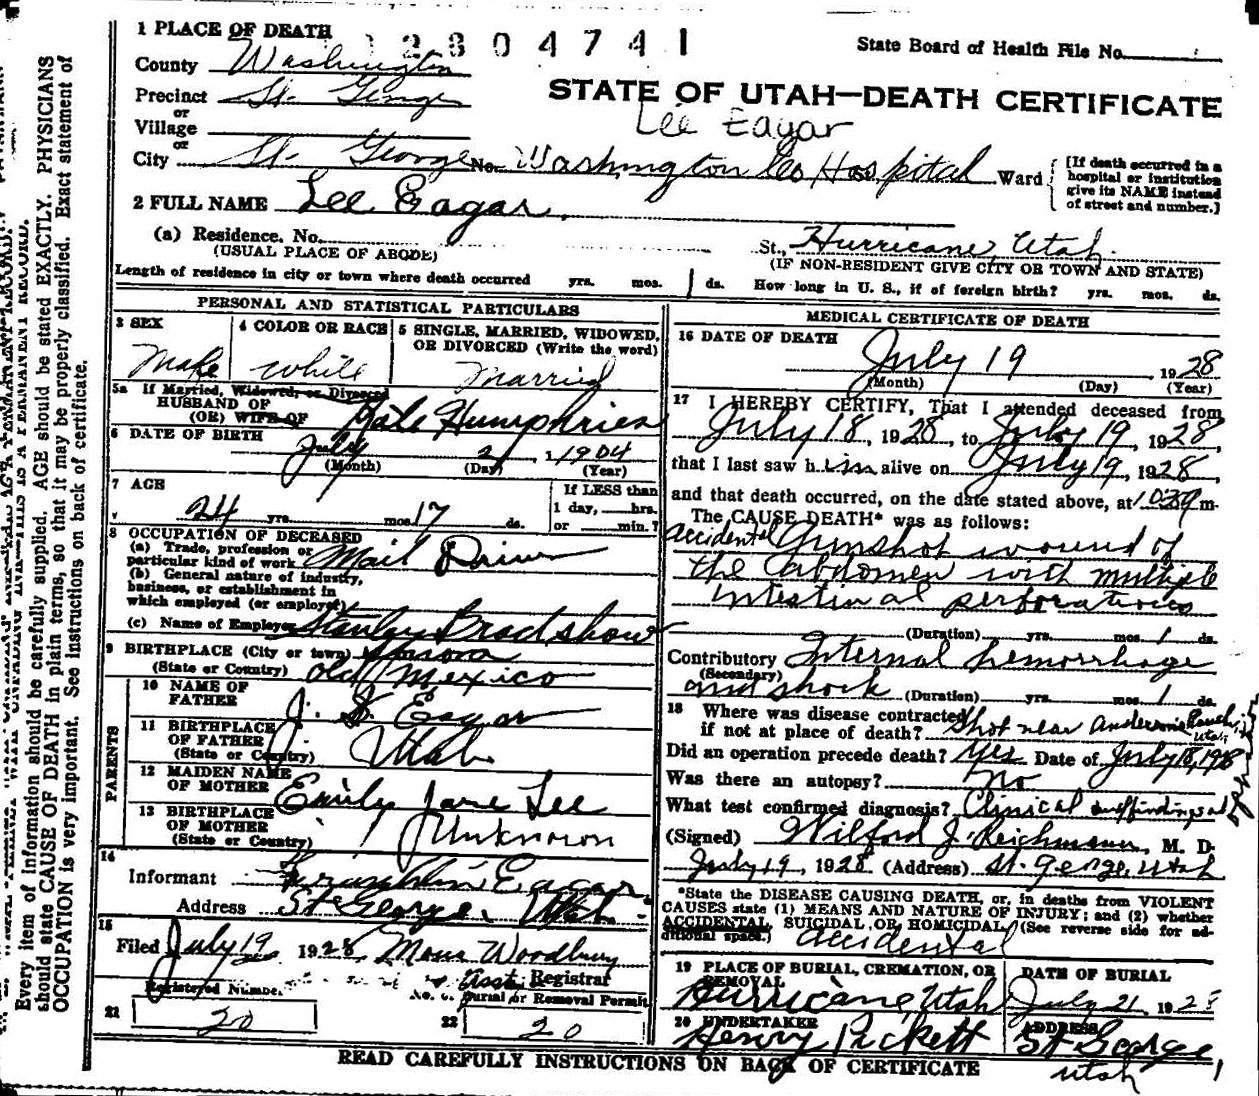 1 PLACE OF DEATH
2 3 0 4 7 4 1
State Board of Health File No.
County Washington
STATE OF UTAH—DEATH CERTIFICATE
Precinct St. George
Lee Eagar
or
Village
or
City St. George No. Washington Co. Hospital Ward
[If death occurred in a
hospital or institution
give its NAME instead
of street and number.]
2 FULL NAME Lee Eagar.
(a) Residence. No. St., Hurricane, Utah.
(USUAL PLACE OF ABODE)
(IF NON-RESIDENT GIVE CITY OR TOWN AND STATE)
Length of residence in city or town where death occurred yrs. mos. ds. How long in U. S., if of foreign birth? yrs. mos. ds.
PERSONAL AND STATISTICAL PARTICULARS
3 SEX
Male
4 COLOR OR RACE
White
5 SINGLE, MARRIED, WIDOWED,
OR DIVORCED (Write the word)
Married
5a If Married, Widowed, or Divorced
HUSBAND OF
(OR) WIFE OF Humphries
6 DATE OF BIRTH
July 2, 1904
(Month) (Day) (Year)
7 AGE
24 yrs. mos. 17 ds.
If LESS than
1 day, hrs.
or min.?
8 OCCUPATION OF DECEASED
(a) Trade, profession or
particular kind of work Mail Driver
(b) General nature of industry,
business, or establishment in
which employed (or employer)
(c) Name of Employer Stanley Bradshaw
9 BIRTHPLACE (City or town) Sonora
(State or Country) Old Mexico
PARENTS
10 NAME OF
FATHER J. S. Eagar
11 BIRTHPLACE
OF FATHER
(State or Country) Utah
12 MAIDEN NAME
OF MOTHER Emily Jane Lee
13 BIRTHPLACE
OF MOTHER
(State or Country) Unknown
14
Informant Franklin Eagar
Address St George, Utah.
15
Filed July 19 1928 Woodbury
Asst. Registrar
Registered Number
21 20
No. of Burial or Removal Permit
22 20
MEDICAL CERTIFICATE OF DEATH
16 DATE OF DEATH
July 19 1928
(Month) (Day) (Year)
17 I HEREBY CERTIFY, That I attended deceased from
July 18, 1928, to July 19, 1928,
that I last saw him alive on July 19, 1928,
and that death occurred, on the date stated above, at m.
The CAUSE DEATH* was as follows:
accidental Gunshot wound of
the Abdomen with multiple
intestinal perforations
(Duration) yrs. mos. 1 ds.
Contributory Internal hemorrhage
(Secondary)
and shock (Duration) yrs. mos. 1 ds.
18 Where was disease contracted
if not at place of death? Shot near Ranch, Utah
Did an operation precede death? Yes Date of July 18, 1928
Was there an autopsy? No
What test confirmed diagnosis? Clinical findings
(Signed) Wilford J. Reichmann, M. D.
July 19, 1928 (Address) St. George, Utah
*State the DISEASE CAUSING DEATH, or, in deaths from VIOLENT
CAUSES state (1) MEANS AND NATURE OF INJURY; and (2) whether
ACCIDENTAL, SUICIDAL, OR HOMICIDAL. (See reverse side for ad-
ditional space.) Accidental
19 PLACE OF BURIAL, CREMATION, OR
REMOVAL
Hurricane, Utah
DATE OF BURIAL
July 21, 1928
20 UNDERTAKER
Henry Pickett
ADDRESS
St George,
Utah
READ CAREFULLY INSTRUCTIONS ON BACK OF CERTIFICATE
Every item of information should be carefully supplied. AGE should be stated EXACTLY. PHYSICIANS
should state CAUSE OF DEATH in plain terms, so that it may be properly classified. Exact statement of
OCCUPATION is very important. See instructions on back of certificate.